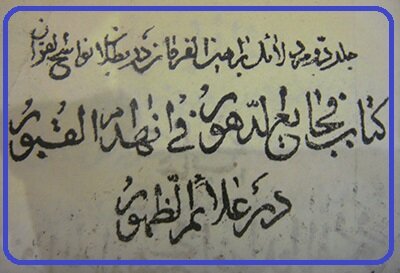 جلد دوم دلائل براهین الفرقان در بطلان نواسخ القرآن
كتاب فجایع الدهور في انهدام القبور
در علائم الظهور